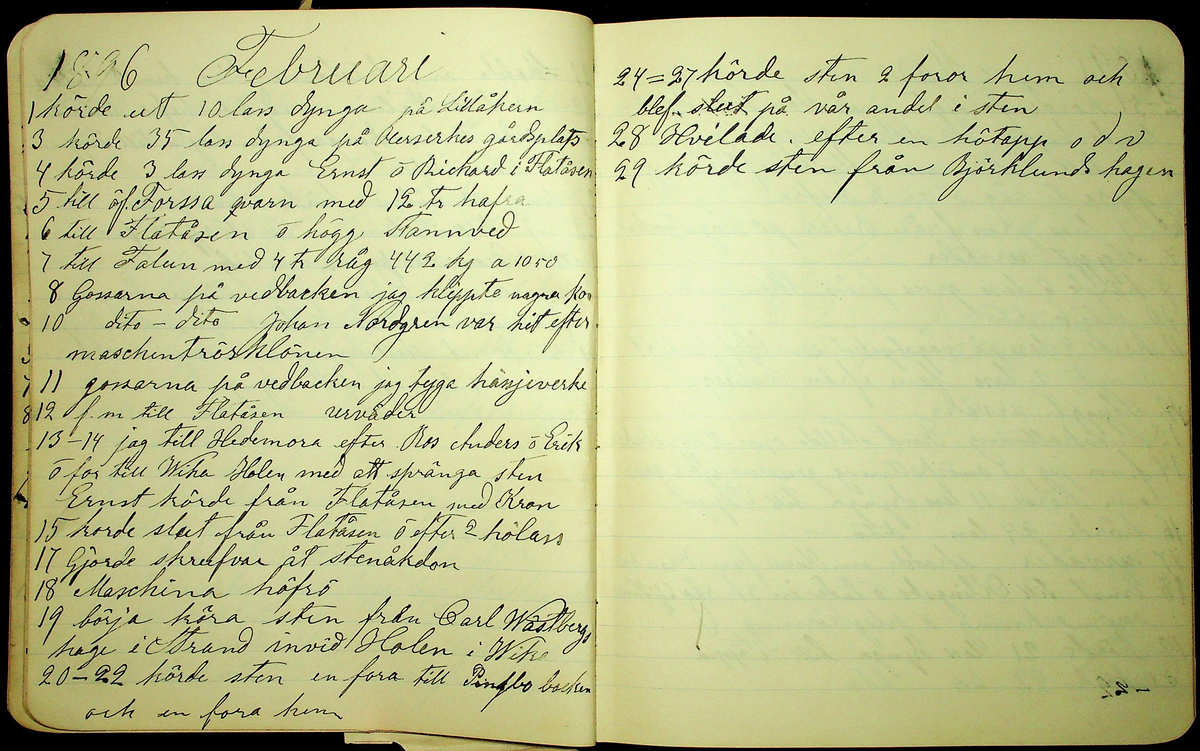 1896 Februari
1 körde ut 10 lass dynga på Lillåkern
3 körde 35 lass dynga på gårdsplats
4 körde 3 lass dynga Ernst o Richard i Flatåsen
5 till öf. Forssa qvarn med 12 tr hafra
6 till Flatåsen o högg Stannved
7 till Falun med 4 tr råg 442 kg a 10 50
8 Gossarna på vedbacken jag klippte några kor
10 dito – dito Johan Nordgren var hit efter
maschentröskl
11 gossarna på vedbacken jag bygga häsjeverke
12 f.m till Flatåsen urväder
13–14 jag till Hedemora efter Ros Anders o Erik
o for till Wika Holen med att spränga sten
Ernst körde från Flatåsen med Kron
15 korde slut från Flatåsen o efter 2 hölass
17 Gjorde skrufvar åt stenåkdon
18 Maschina höfrö
19 börja köra sten från Carl Wästbergs
hage i Strand invid Holen i Wika
20–22 körde sten en fora till backen
och en fora hem
24=27 körde sten 2 foror hem och
blef slut på vår andel i sten
28 Hvilade. efter en hötapp o d v
29 körde sten från Björklunds hagen